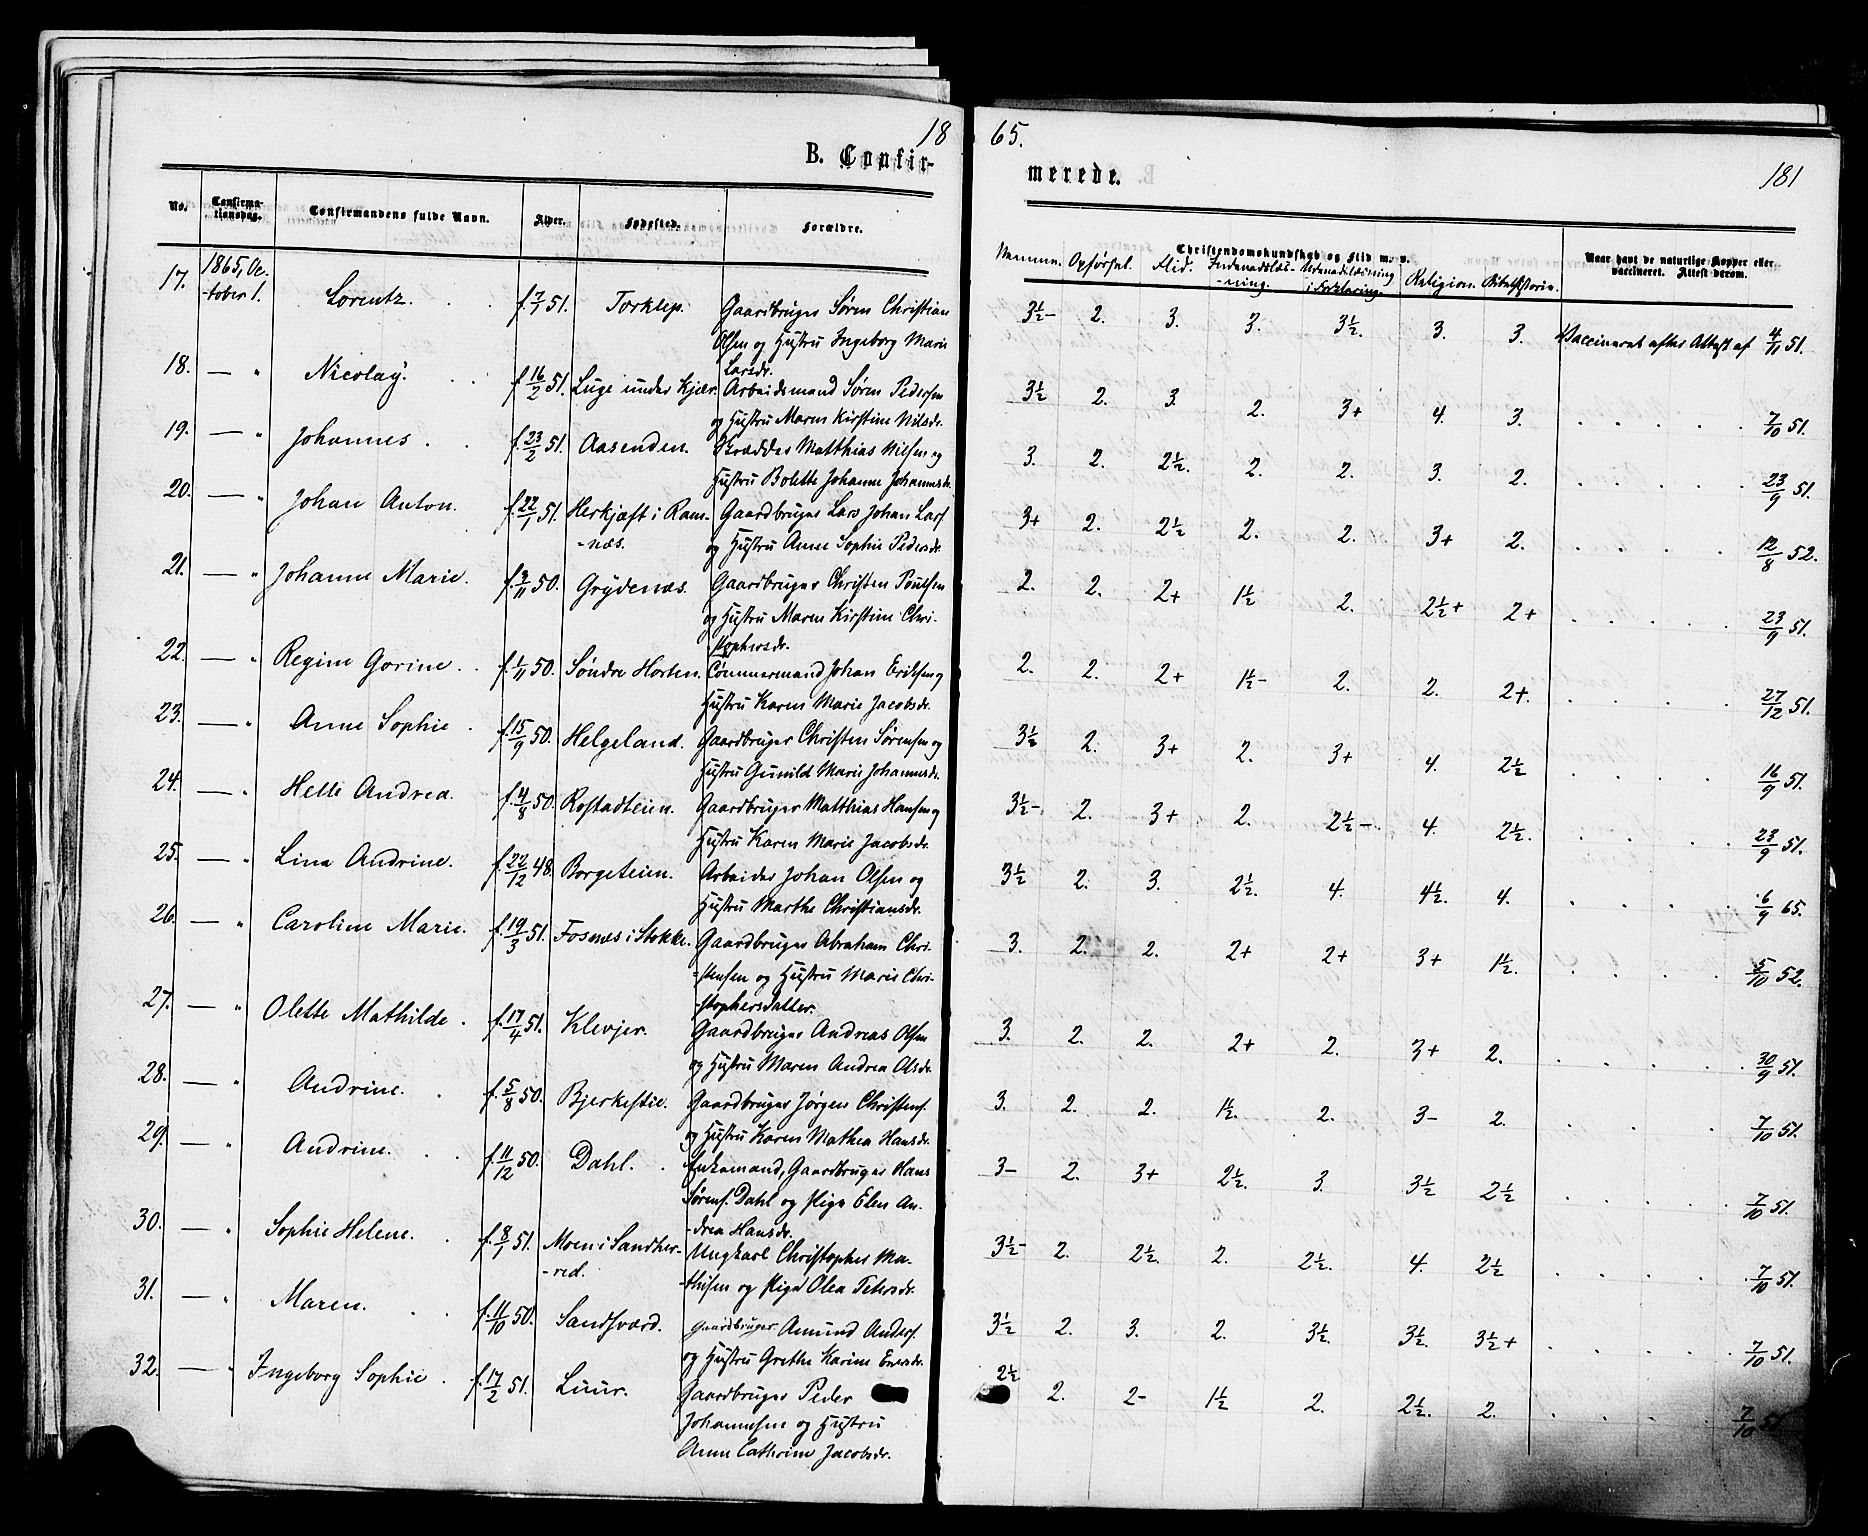 18
65.
B. Confir-
merede.
181
No.
Confirma-
tionsdag.
Confirmandens fulde Navn.
Alder.
Fødested.
Forældre.
Christendomskundskab og Flid m. v.
Opførsel.
Flid.
Religion.
Bibelhistorie.
Naar havt de naturlige Kopper eller
vaccineret. Attest derom.
17. 1865, Oc-
tober 1. Lorentz. f. 7/7 51. Torklep. Gaardbruger Søren Christian
Olsen og Hustru Ingeborg Marie
Larsdr.
3½- 2. 3. 3. 3½. 3. 3. Vaccineret efter Attest af 4/11 51.
18. — " Nicolay. f. 16/2 51. Luge under Kjær. Arbeidsmand Søren Pedersen
og Hustru Maren Kirstine Nilsdr.
3½ 2. 3. 2. 3+ 4. 3. 7/10 51.
19. — " Johannes. f. 23/2 51. Aasenden. Matthias Nilsen og
Hustru Bolette Johanne Johannesdr.
3. 2. 2½. 2. 2. 3. 2. 23/9 51.
20. — " Johan Anton. f. 22/1 51. Herkjæft i Ram-
-næs. Gaardbruger Lars Johan Lars
og Hustru Anne Sophie Pedersdr.
3+ 2. 2½ 2. 2. 3+ 2. 12/8 52.
21. — " Johanne Marie. f. 3/11 50. Grydenæs. Gaardbruger Christen Poulsen
og Hustru Maren Kirstine Chri-
stophersdr.
2. 2. 2+ 1½ 2. 2½+ 2+ 23/9 51.
22. — " Regine Gorine. f. 1/11 50. Søndre Horten. Tømmermand Johan Eriksen og
Hustru Karen Marie Jacobsdr.
2. 2. 2+ 1½- 2. 2. 2+. 27/12 51.
23. — " Anne Sophie f. 15/9 50. Helgeland. Gaardbruger Christen Sørensen og
Hustru Gunild Marie Johannesdr.
3½ 2. 3+ 2. 3+ 4. 2½ 16/9 51.
24. — " Helle Andrea. f. 4/8 50. Rostadteien. Gaardbruger Matthias Hansen og
Hustru Karen Marie Jacobsdr.
3½- 2. 3+ 2. 2½-. 4. 2½. 23/9 51.
25. — " Lina Andrine. f. 22/12 48. Borgeteien. Arbeider Johan Olsen og
Hustru Marthe Christiansdr.
3½ 2. 3. 2½. 4. 4½. 4. 6/9 65.
26. — " Caroline Marie. f. 19/3 51. Fosnæs i Stokke. Gaardbruger Abraham Chri-
-stensen og Hustru Maris Chri-
-stophersdatter.
3. 2. 2. 2+ 2+ 3+ 1½. 5/10 52.
27. — " Olette Mathilde. f. 17/4 51. Klevjer. Gaardbruger Andreas Olsen
og Hustru Maren Andrea Olsdr.
3. 2. 2. 2+ 2. 3+ 2. 30/9 51.
28. — " Andrine. f. 5/8 50. Bjerkestie. Gaardbruger Jørgen Christens.
og Hustru Karen Mathea Hansdr.
3. 2. 2. 1½. 2. 3- 2. 7/10 51.
29. — " Andrine. f. 11/12 50. Dahl. Enkemand, Gaardbruger Hans
Sørens. Dahl og Pige Elen An-
-drea Hansdr.
3- 2. 3+ 2½. 3. 3½ 2½ 7/10 51.
30. — " Sophie Helene. f. 8/1 51. Moen i Sandher-
-red. Ungkarl Christopher Ma-
-thisen og Pige Olea Petersdr.
3½- 2. 2½. 2. 2½. 4. 2½ 7/10 51.
31. — " Maren. f. 11/10 50. Sandsværd. Gaardbruger Amund Anders.
og Hustru Grethe Karine Eversdr.
3½ 2. 3. 2. 3½. 3½. 3½+ 7/10 51.
32. — " Ingeborg Sophie. f. 17/2 51. Luur. Gaardbruger Peder
Johannesen og Hustru
Anne Cathrine Jacobsdr.
2½ 2. 2- 1½ 2. 2½. 2. 7/10 51